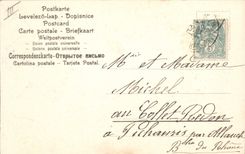 III
Postkarte
Levelező-Lap - Dopisnice
Postcard
Carte postale - Briefkaart
Weltpostverein
Union postale universelle
Unione postale universale
Correspondenzkarte - Открытое письмо
Cartolina postale - Tarjeta Postal
Mr et Madame
Michel
au Coffet Redon
à Pichauris par Allauch
Bches du Rhône